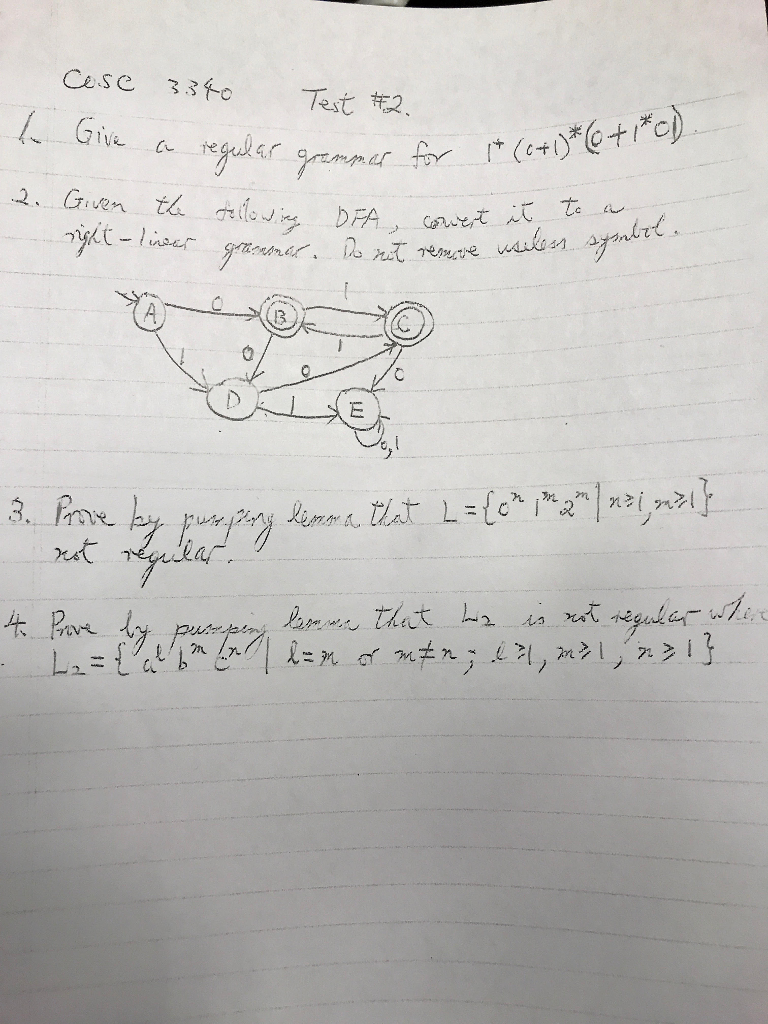 COSC 3340 Test #2.
1. Give a regular grammar for 1* (0+1)*(0+1*01)
2. Given the following DFA, convert it to a
right-linear grammar. Do not remove useless symbol.
A 0 B 1 C
1 0 0 1 0
D 1 E
0,1
3. Prove by pumping lemma that L = {0ⁿ 1ᵐ 2ᵐ | n≥1, m≥1}
not regular.
4. Prove by pumping lemma that L₂ is not regular where
L₂ = { aˡ bᵐ cⁿ | l=m or m≠n; l≥1, m≥1, n≥1}